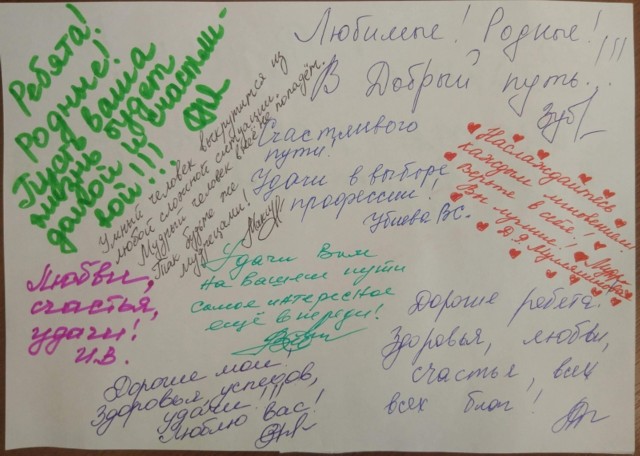 Ребята!
Родные!
Пусть ваша
жизнь будет
долгой и счастли-
вой!!!
Любимые! Родные!
В Добрый путь!!!!
Умный человек выкрутится из
любой сложной ситуации.
Мудрый человек в неё не попадёт.
Так будьте же
мудрецами!
Счастливого
пути!
Удачи в выборе
профессии!
Убиева В.С.
Наслаждайтесь
каждым мгновением!
Верьте в себя!
Вы лучшие!
Любви,
счастья,
удачи!
И.В.
Удачи Вам
на вашем пути
самое интересное
ещё впереди!
Дорогие ребята.
Здоровья, любви,
счастья, всех
всех благ!
Дорогие мои,
Здоровья, успехов,
удачи!!!
Люблю Вас!